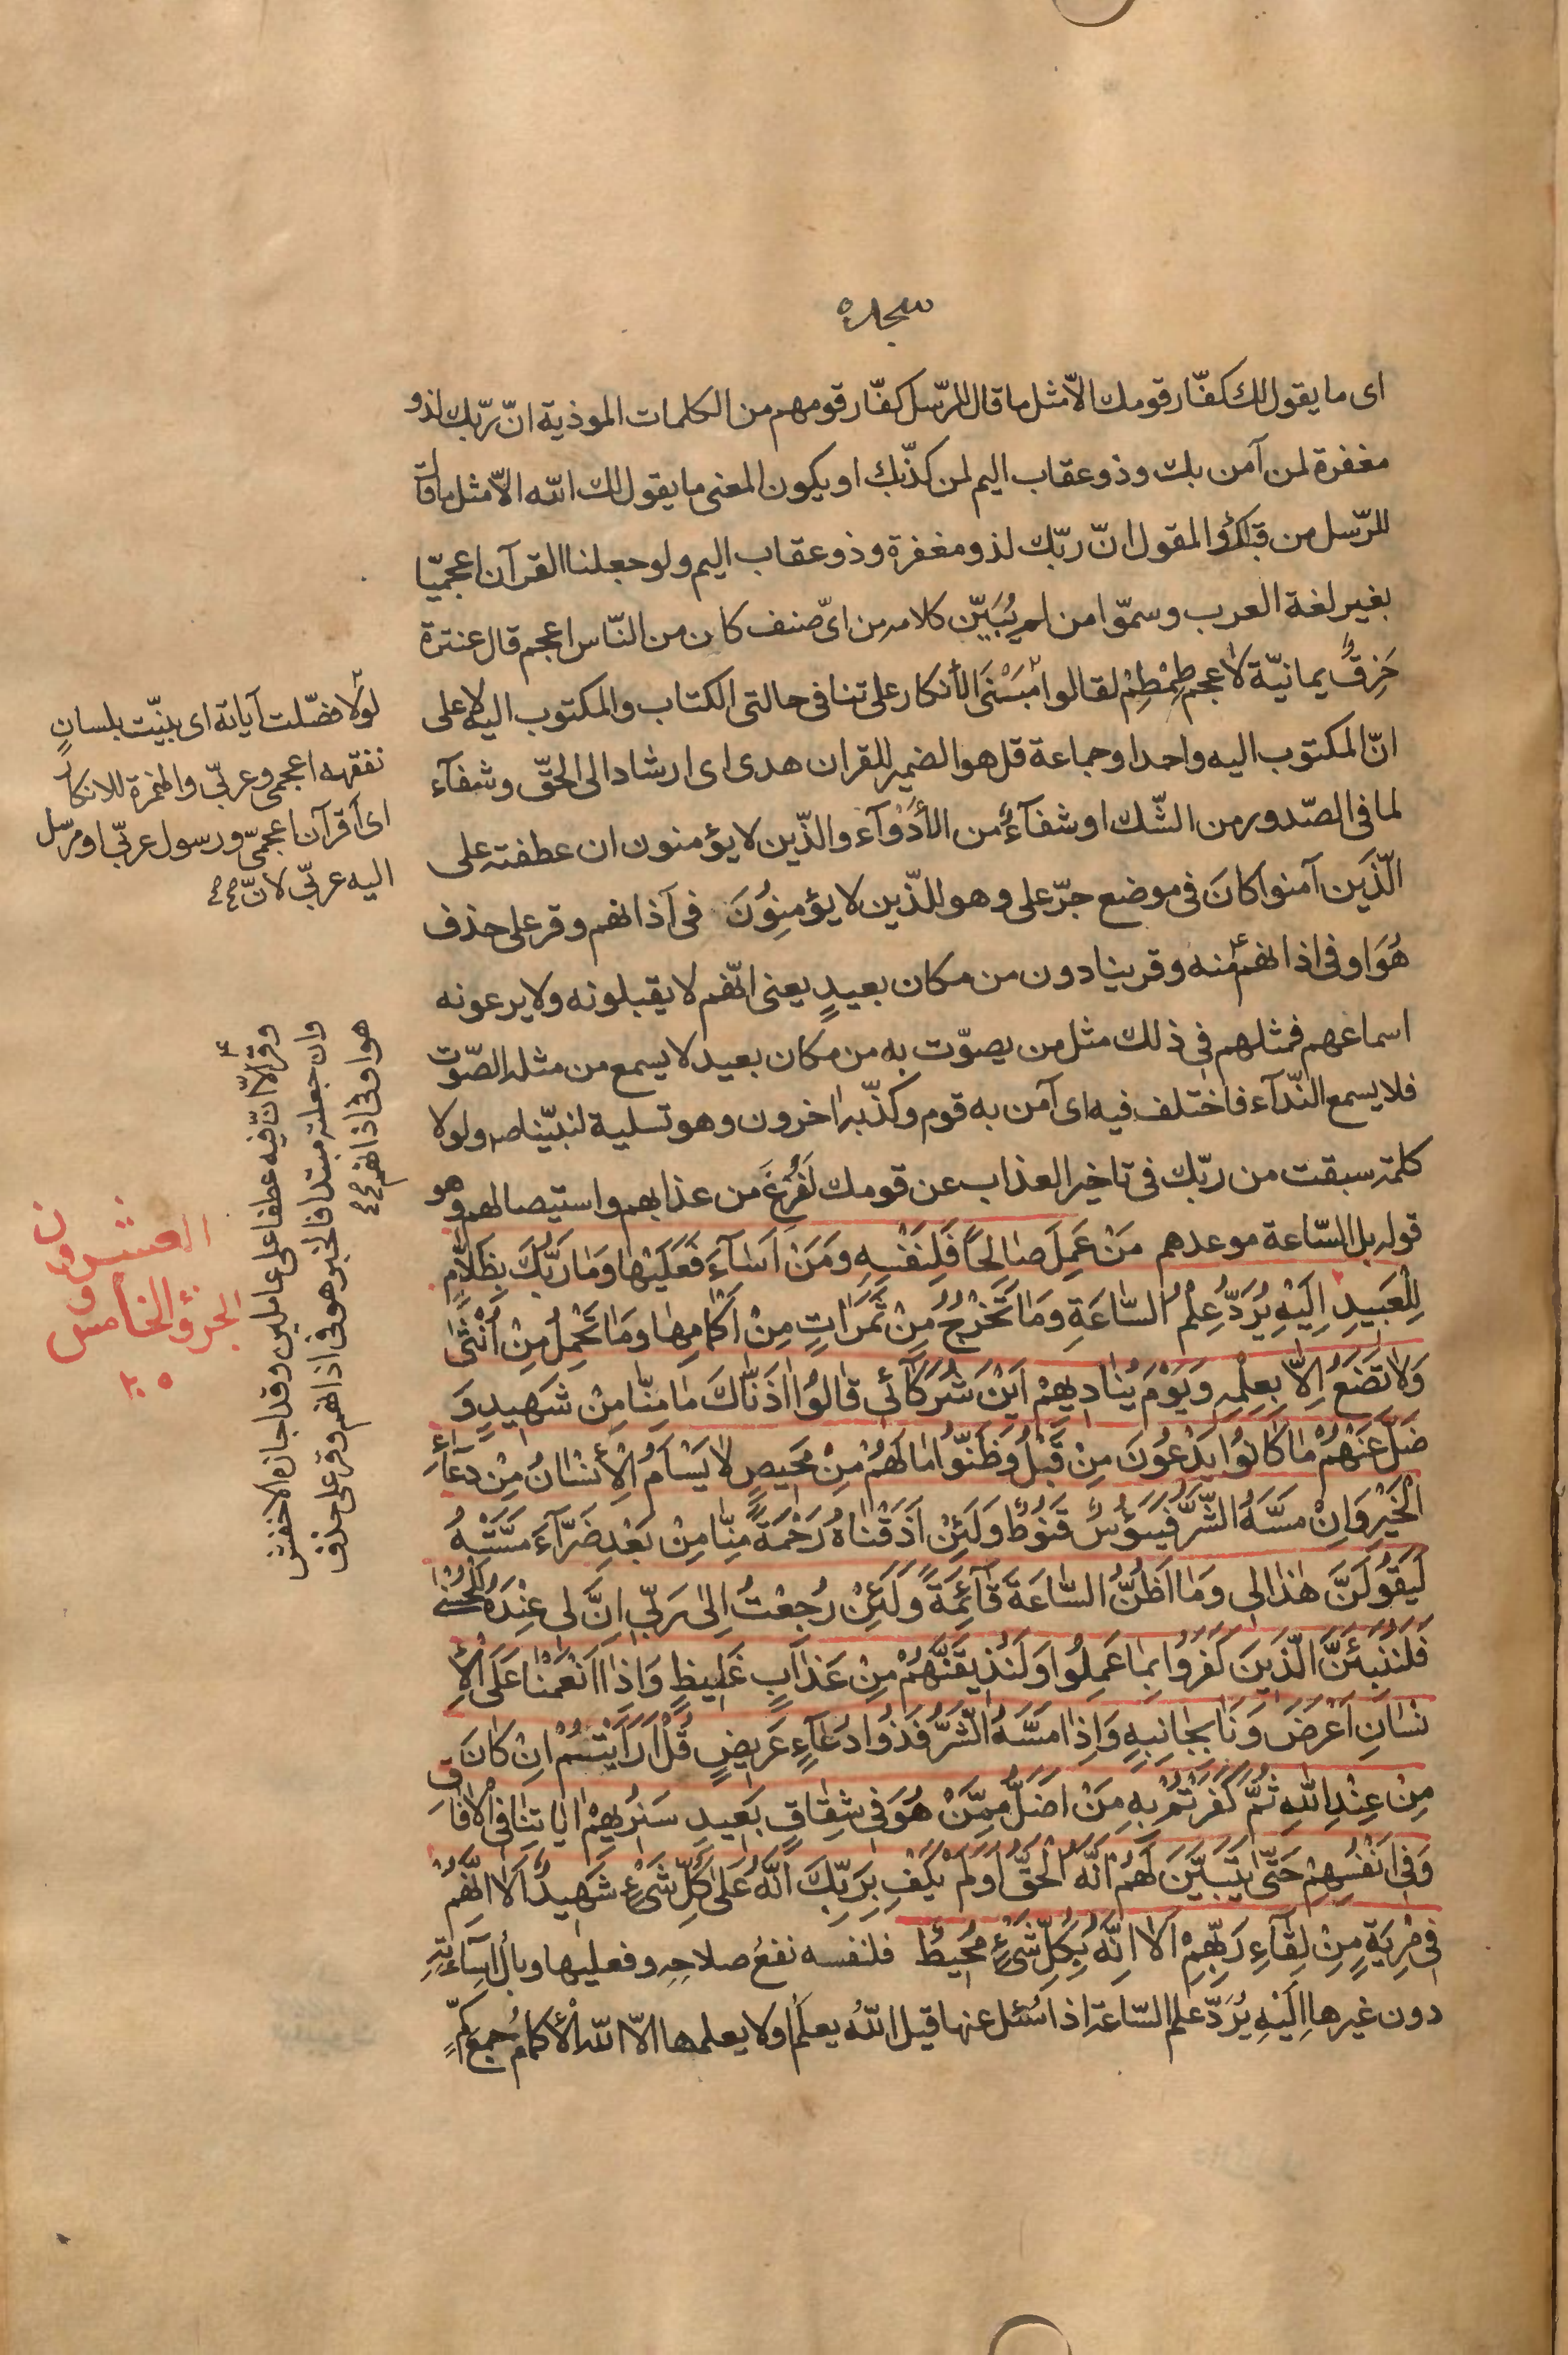 سجده
ای ما یقول لك كفّار قومك الاّ مثل ما قال للرّسل كفّار قومهم من الكلمات الموذیة انّ ربّك لذو
مغفرة لمن آمن بك وذو عقاب الیم لمن كذّبك او یكون المعنی ما یقول لك الله الاّ مثل ما قال
للرّسل من قبلك والمقول انّ ربّك لذو مغفرة وذو عقاب الیم ولو جعلنا القرآن اعجمیّا
بغیر لغة العرب وسمّوا من لم یُبَیّن كلامه من ایّ صنف كان من النّاس اعجم قال عنترة
حَزِقٌ یمانیّة لاعجم طِمْطِمْ لقالوا مَبْنَی الأنكار علی تنافی حالتی الكتاب والمكتوب الیه لا علی
انّ المكتوب الیه واحد او جماعة قل هو الضمیر للقران هدی ای ارشاد الی الحقّ وشفآء
لما فی الصّدور من الشّك او شفآءٌ من الأدْوآء والذّین لا یؤمنون ان عطفته علی
الّذَین آمنوا كانَ فی موضع جرّ علی وهو للذّین لا یؤمِنُونَ فی آذانهم وقر علی حذف
هُوَ او فی اذانهم منه وقر ینادون من مكان بعیدٍ یعنی انّهم لا یقبلونه ولا یرعونه
اسماعهم فمثلهم فی ذلك مثل من یصوّت به من مكان بعید لا یسمع من مثله الصّوت
فلا یسمع النّدآء فاختلف فیه ای آمن به قوم وكذّبه اخرون وهو تسلیة لنبیّنا صه ولولا
كلمة سبقت من ربّك فی تاخیر العذاب عن قومك لَفُرِغَ من عذابهم واستیصالهم وهو
قوله بل السّاعة موعدهم مَنْ عَمِلَ صٰالِحاً فَلِنَفْسِهِ وَمَنْ اَسٰآءَ فَعَلَیْهٰا وَمٰا رَبُّكَ بِظَلاّٰمٍ
لِلْعَبیدِ اِلَیْهِ یُرَدُّ عِلْمُ السّٰاعَةِ وَمٰا تَخْرُجُ مِنْ ثَمَرٰاتٍ مِنْ اَكْمٰامِهٰا وَمٰا تَحْمِلُ مِنْ اُنْثیٰ
وَلاٰ تَضَعُ اِلاّٰ بِعِلْمِهِ وَیَوْمَ یُنٰادیهِمْ اَیْنَ شُرَكٰآئی قٰالُوٓا اٰذَنّٰاكَ مٰا مِنّٰا مِنْ شَهیدٍ وَ
ضَلَّ عَنْهُمْ مٰا كٰانُوا یَدْعُونَ مِنْ قَبْلُ وَظَنُّوا مٰا لَهُمْ مِنْ مَحیصٍ لاٰ یَسْاَمُ الْأِنْسٰانُ مِنْ دُعٰآءِ
الْخَیْرِ وَاِنْ مَسَّهُ الشَّرُّ فَیَؤُسٌ قَنُوطٌ وَلَئِنْ اَذَقْنٰاهُ رَحْمَةً مِنّٰا مِنْ بَعْدِ ضَرّٰآءَ مَسَّتْهُ
لَیَقُولَنَّ هٰذٰا لی وَمٰا اَظُنُّ السّٰاعَةَ قٰآئِمَةً وَلَئِنْ رُجِعْتُ اِلیٰ رَبّی اِنَّ لی عِنْدَهُ لَلْحُسْنیٰ
فَلَنُنَبِئَنَّ الَّذینَ كَفَرُوا بِمٰا عَمِلُوا وَلَنُذیقَنَّهُمْ مِنْ عَذٰابٍ غَلیظٍ وَاِذٰا اَنْعَمْنٰا عَلَی الْأِ
نْسٰانِ اَعْرَضَ وَنَا بِجٰانِبِهِ وَاِذٰا مَسَّهُ الشَّرُّ فَذُوا دُعٰآءٍ عَریضٍ قُلْ اَرَاَیْتُمْ اِنْ كٰانَ
مِنْ عِنْدِ اللهِ ثُمَّ كَفَرْتُمْ بِهِ مَنْ اَضَلُّ مِمَّنْ هُوَ فی شِقٰاقٍ بَعیدٍ سَنُریهِمْ اٰیٰاتِنٰا فِی الْاٰفٰاقِ
وَفی اَنْفُسِهِمْ حَتّٰی یَتَبَیَّنَ لَهُمْ اَنَّهُ الْحَقُّ اَوَلَمْ یَكْفِ بِرَبِّكَ اَنَّهُ عَلیٰ كُلِّ شَیْءٍ شَهیدٌ اَلاٰ اِنَّهُمْ
فی مِرْیَةٍ مِنْ لِقٰآءِ رَبِّهِمْ اَلاٰ اِنَّهُ بِكُلِّ شَیْءٍ مُحیطٌ فلنفسه نفعُ صلاحِه وفعلیها وبال اسآءتِهِ
دون غیرها اِلَیْهِ یُرَدّ علم السّاعة اذا سُئل عنها قیل اللهُ یعلمُ او لا یعلمها الاّ الله الأكمامُ جمع كمٍّ
لولا فصّلت آیاته ای بیّنت بلسانٍ
نفقهه اعجمی وعربّی والهمزة للانكار
ای أقرآن اعجمّی ورسول عربّی او مرسل
الیه عربّی لانّ
وقر الاّ انّ فیه عطفا علی عاملین وقد اجازه الاخفش
وان جعلته مبتدا فالخبر هو فی اذانهم وقر علی حذف
هو او فی اذانهم
العشرون
و
الجزؤ الخامس
۲۰۵